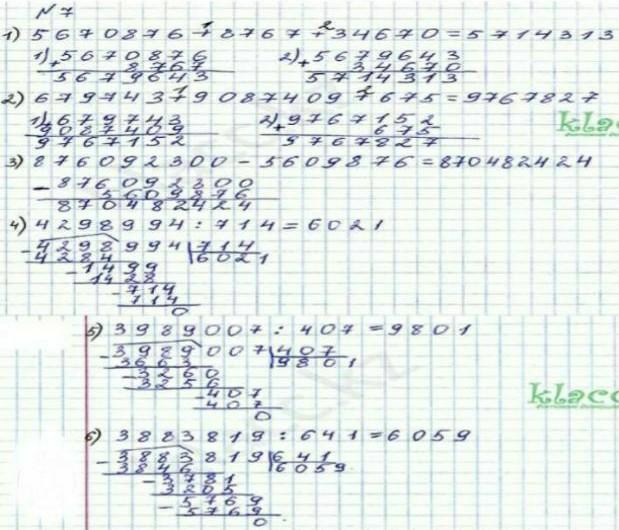 № 7
1) 5670876 + 8767 + 34670 = 5714313
1) + 5670876 2) + 5679643
8767 34670
5679643 5714313
2) 679743 + 9087409 + 675 = 9767827
1) + 679743 2) + 9767152
9087409 675
9767152 9767827
3) 876092300 - 5609876 = 870482424
- 876092300
5609876
870482424
4) 4298994 : 714 = 6021
- 4298994 | 714
4284 6021
- 1499
1428
- 714
714
0
5) 3989007 : 407 = 9801
- 3989007 | 407
3663 9801
- 3260
3256
- 407
407
0
6) 3883819 : 641 = 6059
- 3883819 | 641
3846 6059
- 3781
3205
- 5769
5769
0